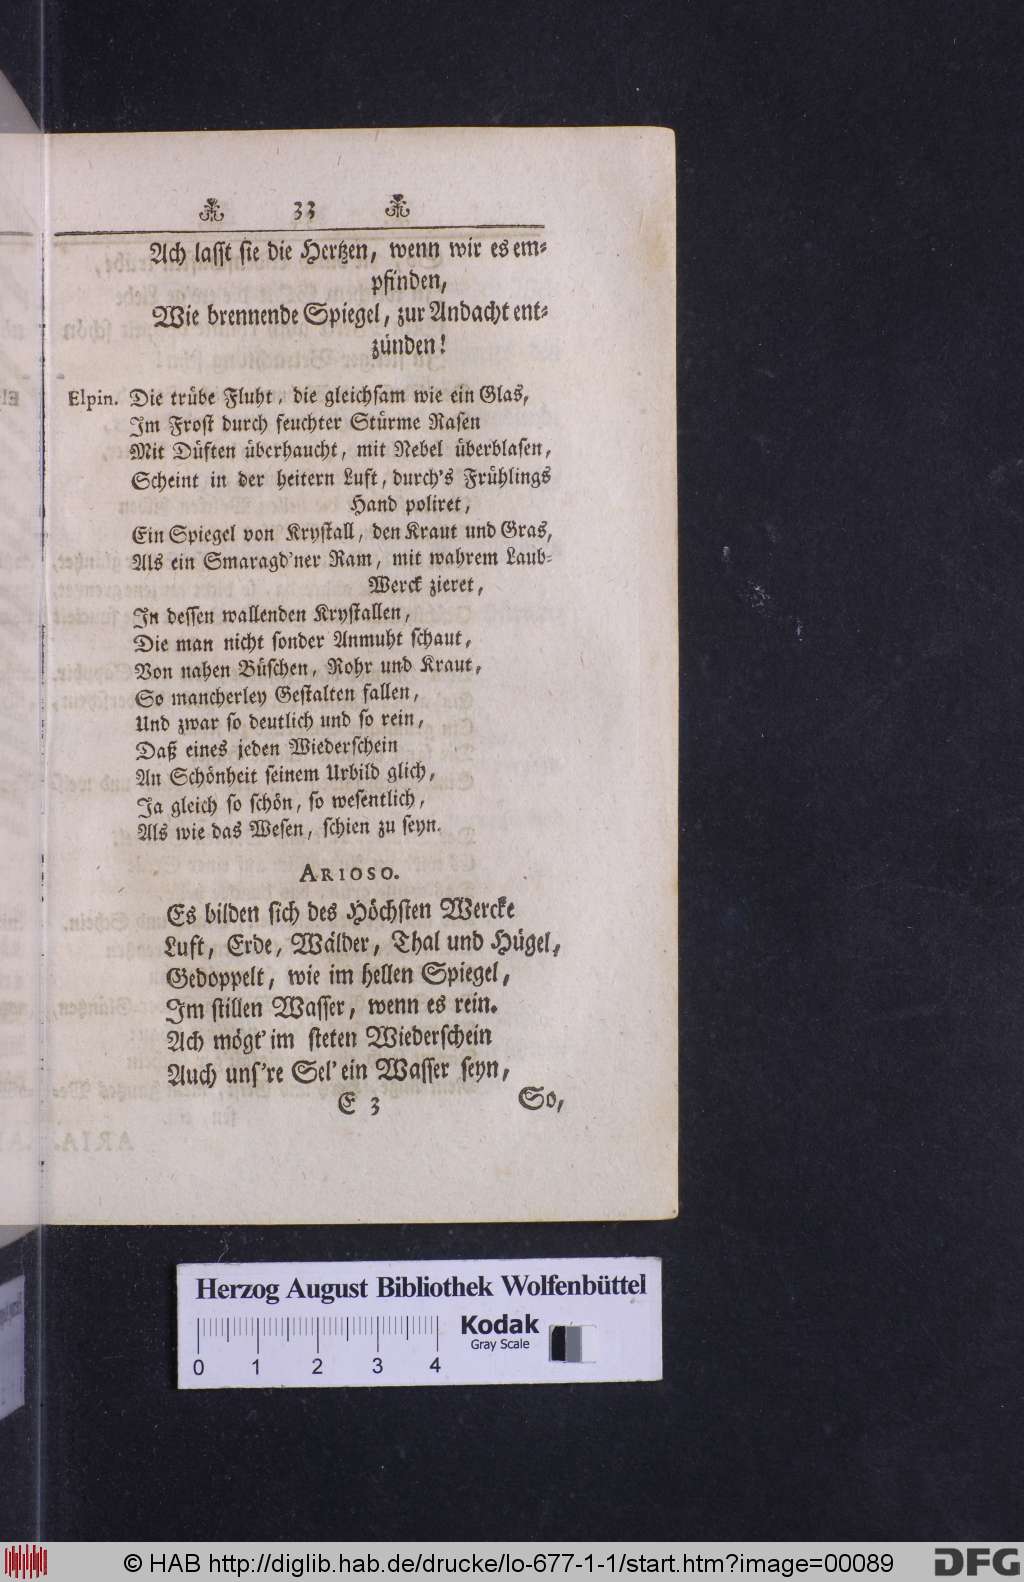 33
Ach lasst sie die Hertzen, wenn wir es em-
pfinden,
Wie brennende Spiegel, zur Andacht ent-
zünden!
Elpin. Die trübe Fluht, die gleichsam wie ein Glas,
Im Frost durch feuchter Stürme Rasen
Mit Düften überhaucht, mit Nebel überblasen,
Scheint in der heitern Luft, durch's Frühlings
Hand poliret,
Ein Spiegel von Krystall, den Kraut und Gras,
Als ein Smaragd'ner Ram, mit wahrem Laub-
Werck zieret,
In dessen wallenden Krystallen,
Die man nicht sonder Anmuht schaut,
Von nahen Büschen, Rohr und Kraut,
So mancherley Gestalten fallen,
Und zwar so deutlich und so rein,
Daß eines jeden Wiederschein
An Schönheit seinem Urbild glich,
Ja gleich so schön, so wesentlich,
Als wie das Wesen, schien zu seyn.
ARIOSO.
Es bilden sich des Höchsten Wercke
Luft, Erde, Wälder, Thal und Hügel,
Gedoppelt, wie im hellen Spiegel,
Im stillen Wasser, wenn es rein.
Ach mögt' im steten Wiederschein
Auch uns're Sel' ein Wasser seyn,
E 3 So,
Herzog August Bibliothek Wolfenbüttel
Kodak
Gray Scale
0 1 2 3 4
© HAB http://diglib.hab.de/drucke/lo-677-1-1/start.htm?image=00089
DFG